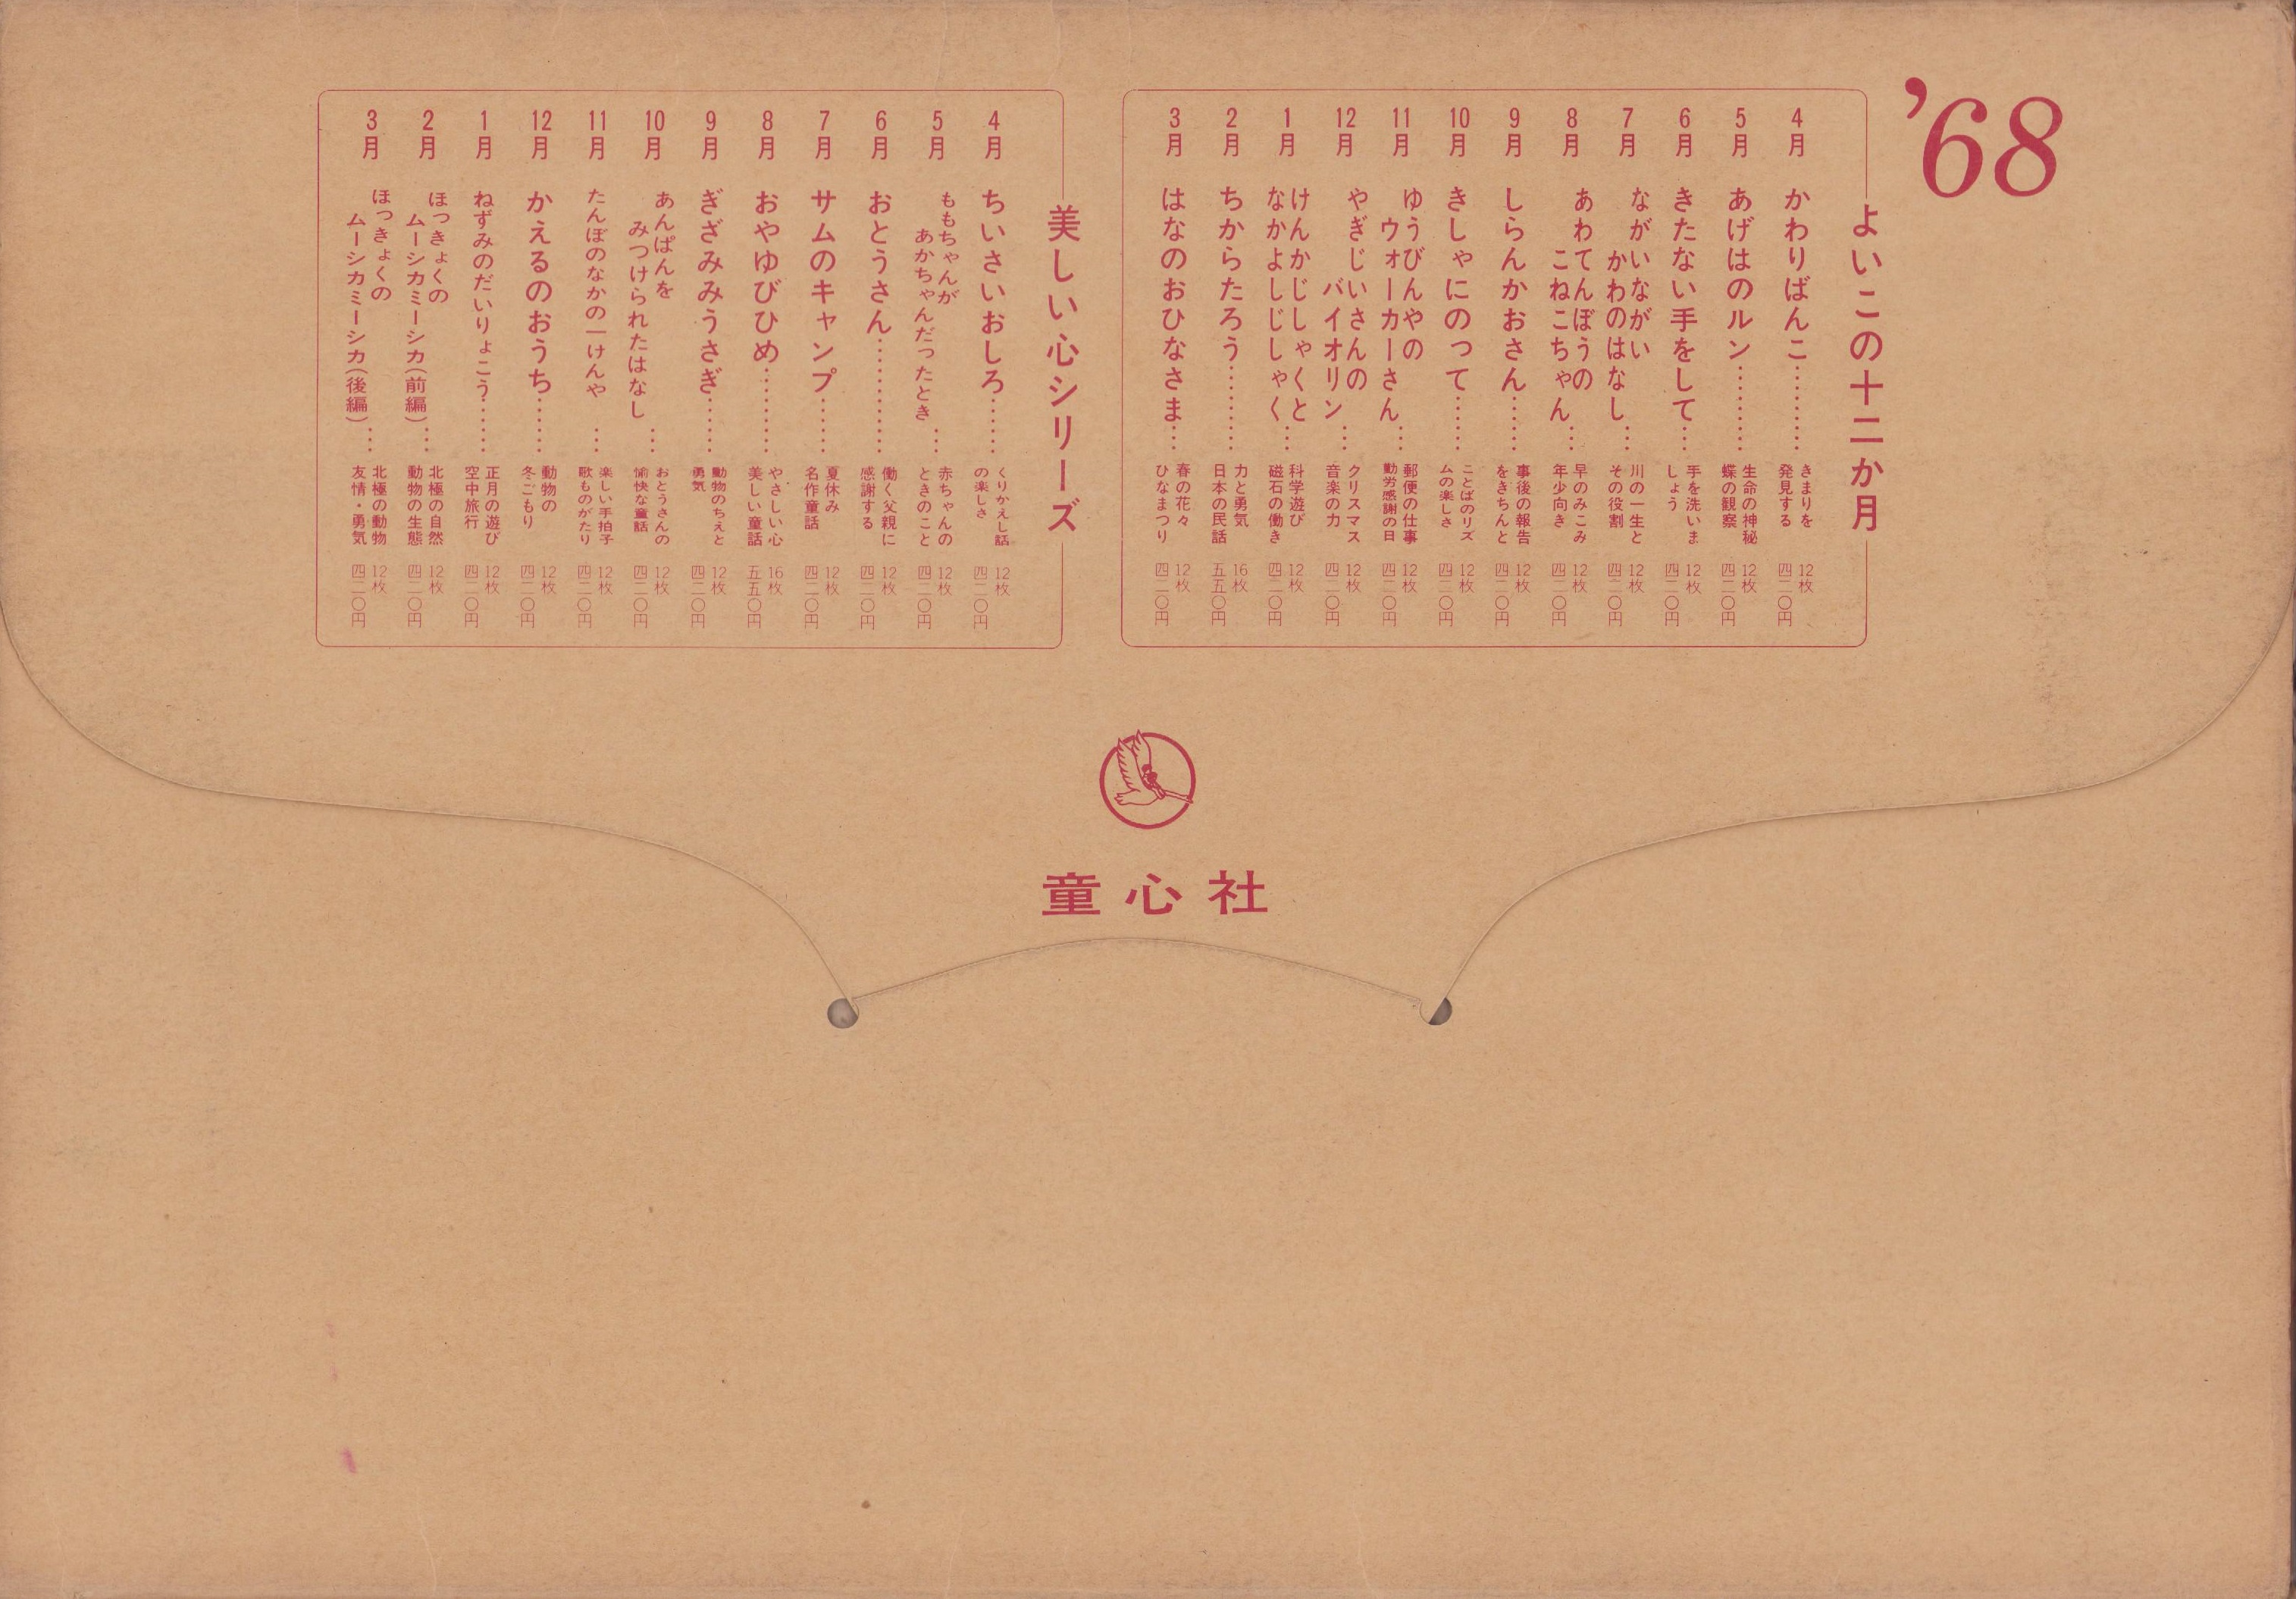 ’68
よいこの十二か月
4月
かわりばんこ………
きまりを
発見する
12枚
四二〇円
5月
あげはのルン………
生命の神秘
蝶の観察
12枚
四二〇円
6月
きたない手をして…
手を洗いま
しょう
12枚
四二〇円
7月
ながいながい
かわのはなし…
川の一生と
その役割
12枚
四二〇円
8月
あわてんぼうの
こねこちゃん…
早のみこみ
年少向き
12枚
四二〇円
9月
しらんかおさん……
事後の報告
をきちんと
12枚
四二〇円
10月
きしゃにのって……
ことばのリズ
ムの楽しさ
12枚
四二〇円
11月
ゆうびんやの
ウォーカーさん…
郵便の仕事
勤労感謝の日
12枚
四二〇円
12月
やぎじいさんの
バイオリン…
クリスマス
音楽の力
12枚
四二〇円
1月
けんかじしゃくと
なかよしじしゃく…
科学遊び
磁石の働き
12枚
四二〇円
2月
ちからたろう………
力と勇気
日本の民話
16枚
五五〇円
3月
はなのおひなさま…
春の花々
ひなまつり
12枚
四二〇円
美しい心シリーズ
4月
ちいさいおしろ……
くりかえし話
の楽しさ
12枚
四二〇円
5月
ももちゃんが
あかちゃんだったとき…
赤ちゃんの
ときのこと
12枚
四二〇円
6月
おとうさん…………
働く父親に
感謝する
12枚
四二〇円
7月
サムのキャンプ……
夏休み
名作童話
12枚
四二〇円
8月
おやゆびひめ………
やさしい心
美しい童話
16枚
五五〇円
9月
ぎざみみうさぎ……
動物のちえと
勇気
12枚
四二〇円
10月
あんぱんを
みつけられたはなし…
おとうさんの
愉快な童話
12枚
四二〇円
11月
たんぼのなかの一けんや…
楽しい手拍子
歌ものがたり
12枚
四二〇円
12月
かえるのおうち……
動物の
冬ごもり
12枚
四二〇円
1月
ねずみのだいりょこう……
正月の遊び
空中旅行
12枚
四二〇円
2月
ほっきょくの
ムーシカミーシカ(前編)…
北極の自然
動物の生態
12枚
四二〇円
3月
ほっきょくの
ムーシカミーシカ(後編)…
北極の動物
友情・勇気
12枚
四二〇円
童心社